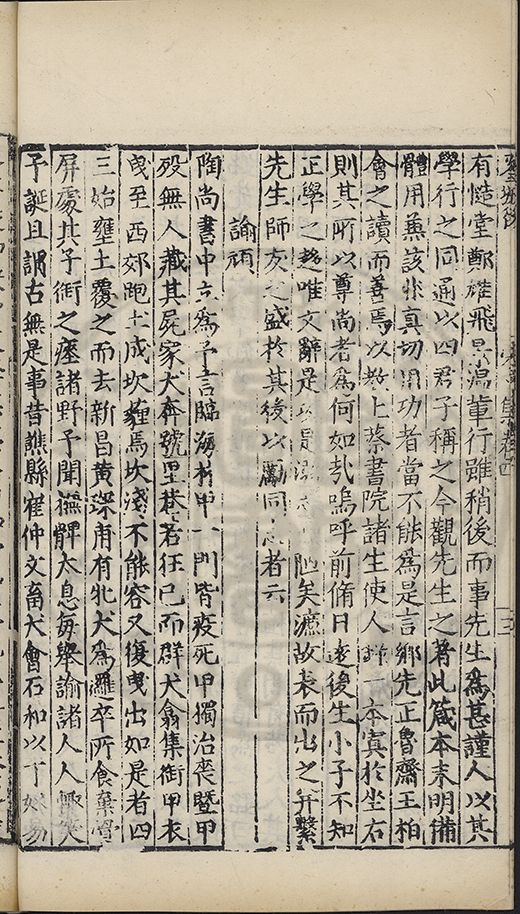 有慥堂鄭雄飛景温輩行雖稍後而事先生爲甚謹人以其
學行之同通以四君子稱之今觀先生之著此箴本末明備
體用兼該非真切用功者當不能爲是言鄉先正魯齋王柏
會之讀而善焉以教上蔡書院諸生使人一本寘於坐右
則其所以尊尚者爲何如哉嗚呼前脩日遠後生小子不知
正學之趨唯文辭是是陋矣濂故表而出之并繫
先生師友之盛於其後以勵同志者云
諭頑
陶尚書中立爲予言臨海有甲一門皆疫死甲獨治喪暨甲
歿無人藏其屍家犬奔號里巷若狂已而群犬翕集銜甲衣
曳至西郊跑土成坎薶焉坎淺不能容又復曳出如是者四
三始壅土覆之而去新昌黄琛甫有牝犬爲邏卒所食棄骨
屏處其子銜之瘞諸野予聞撫髀太息每舉諭諸人人輒笑
予誕且謂古無是事昔譙縣崔仲文畜犬會石和以丁奴易